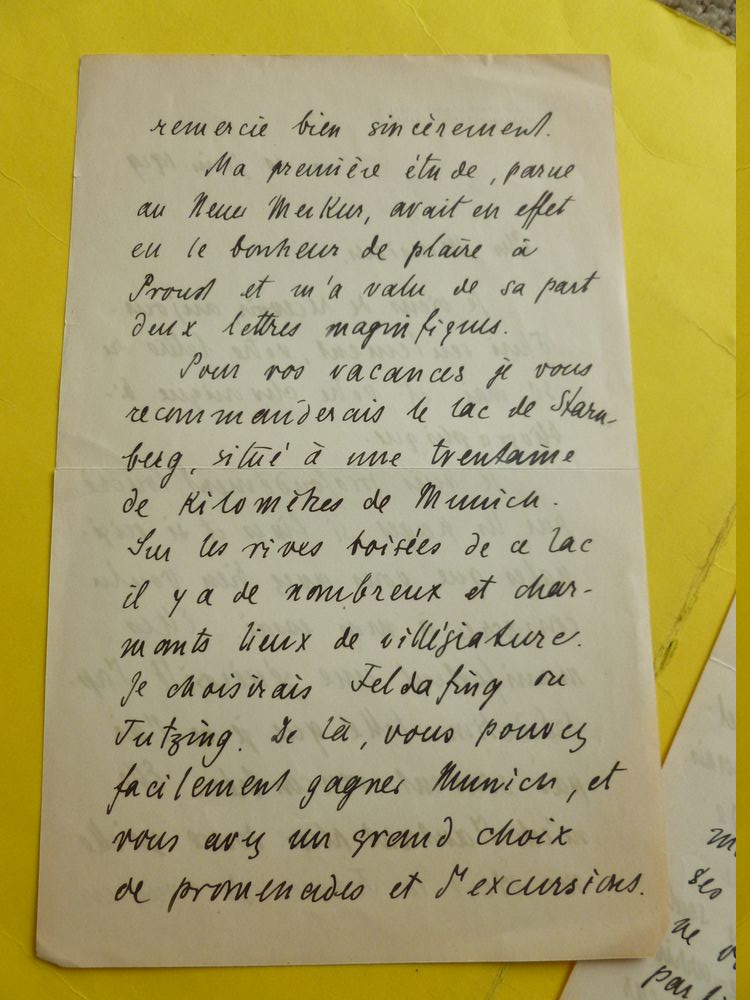 remercie bien sincèrement.
Ma première étude, parue
au Neuer Merkur, avait en effet
eu le bonheur de plaire à
Proust et m'a valu de sa part
deux lettres magnifiques.
Pour vos vacances je vous
recommanderais le lac de Starn-
berg, situé à une trentaine
de kilomètres de Munich.
Sur les rives boisées de ce lac
il y a de nombreux et char-
mants lieux de villégiature.
Je choisirais Feldafing ou
Tutzing. De là, vous pouvez
facilement gagner Munich, et
vous avez un grand choix
de promenades et d'excursions.
ses
ne